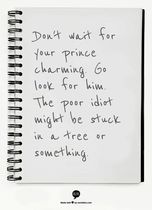 Don't wait for
your prince
charming. Go
look for him.
The poor idiot
might be stuck
in a tree or
something.